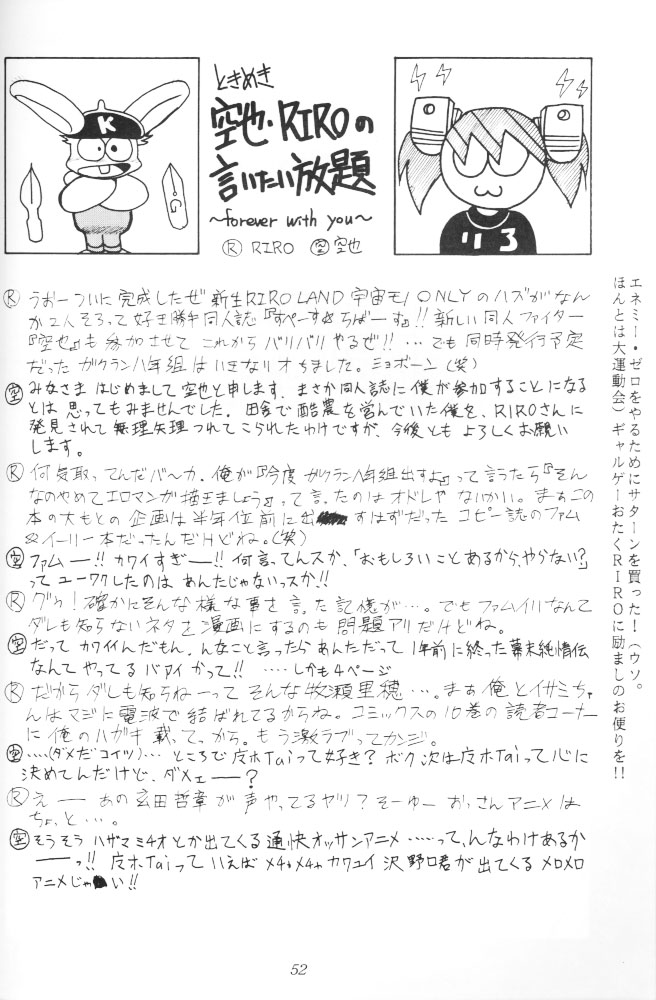 ときめき
空也・RIROの
言いたい放題
～forever with you～
Ⓡ RIRO ㊢空也
K
G
リ3
エネミー・ゼロをやるためにサターンを買った！（ウソ。
ほんとは大運動会）ギャルゲーおたくRIROに励ましのお便りを!!
Ⓡ うおーついに完成したぜ 新生RIRO LAND 宇宙モノONLYのハズがなん
か2人そろって好き勝手同人誌『すぺーす☆ちばーす』!! 新しい同人ファイター
『空也』も参加させて これからバリバリやるぜ!! …でも同時発行予定
だった ガクラン八年組は いきなりオちました。ショボーン（笑）
空 みなさま はじめまして 空也と申します。まさか同人誌に僕が参加することになる
とは 思ってもみませんでした。田舎で酪農を営んでいた僕を、RIROさんに
発見されて無理矢理つれてこられたわけですが、今後とも よろしくお願い
します。
Ⓡ 何気取ってんだバ〜カ。俺が『今度 ガクラン八年組出すよ』って言うたら『そん
なのやめてエロマンガ描きましょう』って言ったのはオドレや ないかい。まずこの
本の大もとの 企画は半年位前に出 すはずだった コピー誌のファム
&イーリー本だったんだけどねェ。（笑）
空 ファムー!! カワイすぎー!! 何言ってんスか、「おもしろいことあるから、やらない?」
って ユーワクしたのは あんたじゃないっスか!!
Ⓡ グゥ! 確かにそんな様な事を言った記憶が…。でもファムイリなんて
ダレも知らないネタを漫画にするのも 問題アリだけどね。
空 だって カワイイんだもん。んなこと言ったらあんただって1年前に終った幕末純情伝
なんてやってるバアイかって!! ……しかも4ページ
Ⓡ だからダレも知らねーって そんな牧瀬里穂…。まず俺とイサミちゃ
んはマジに電波で結ばれてるからね。コミックスの10巻の読者コーナー
に俺のハガキ載ってっから。もう激ラブってカンジ。
空 ……(ダメだコイツ)… ところで 広ホTaiって好き? ボク次は広ホTaiって心に
決めてんだけど、ダメェー?
Ⓡ えー あの玄田哲章が声やってるヤツ? そーゆー おっさんアニメは
ちょっと…。
空 そうそう ハザマミチオとか出てくる 通快オッサンアニメ ……って、んなわけあるか
ーっ!! 広ホTaiって いえば メチャメチャ カワユイ 沢野口君が出てくる メロメロ
アニメじゃ い!!
52